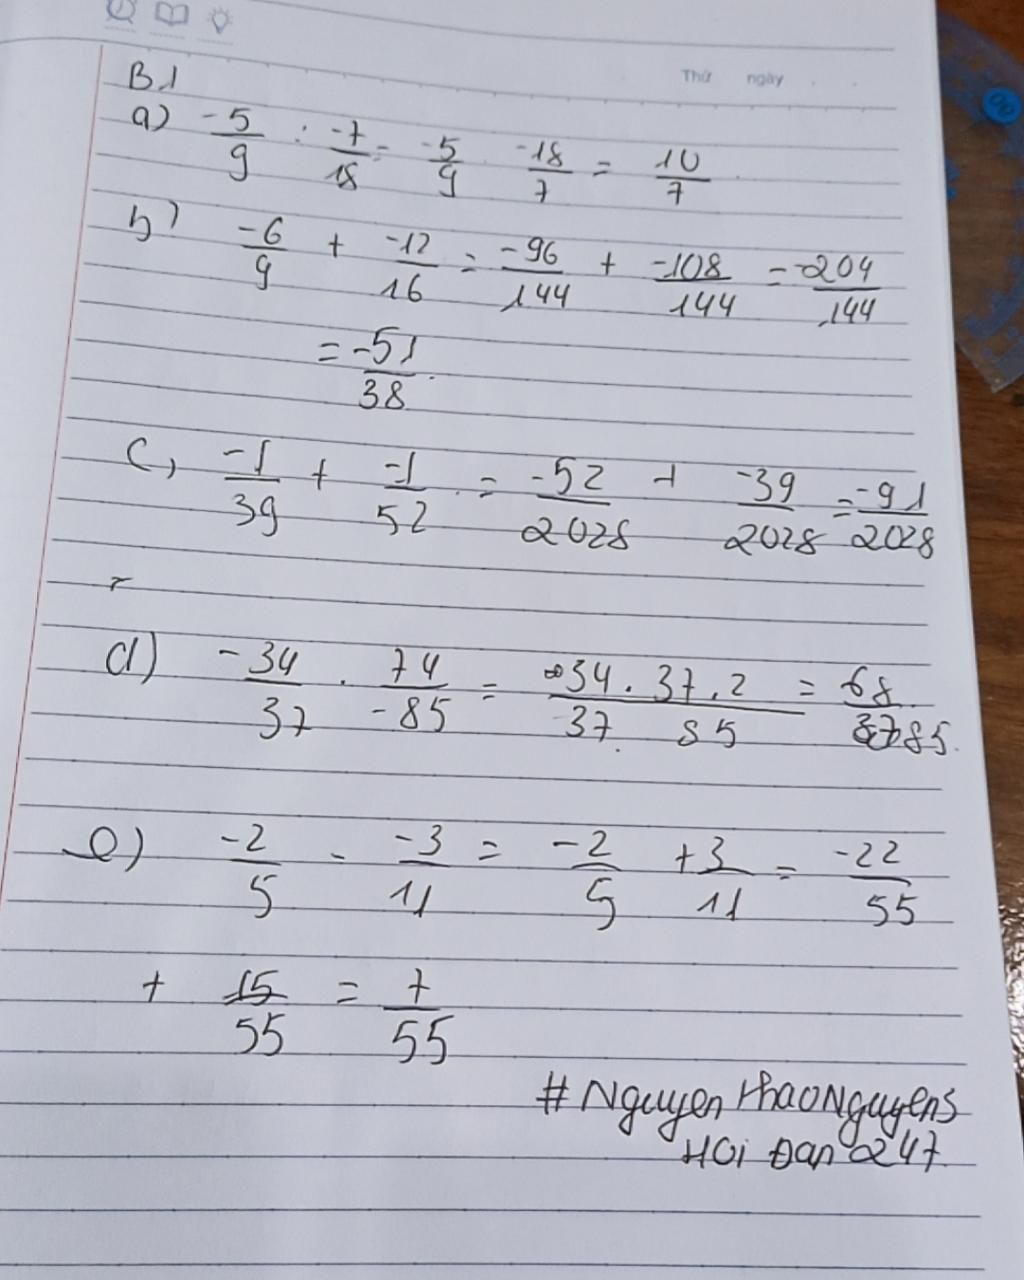 Thứ ngày
B1
a) -5/9 : -7/18 = -5/9 . -18/7 = 10/7
b) -6/9 + -12/16 = -96/144 + -108/144 = -204/144
= -51/38
c, -1/39 + -1/52 = -52/2028 + -39/2028 = -91/2028
d) -34/37 . 74/-85 = 34.37.2/37 85 = 68/85
e) -2/5 - -3/11 = -2/5 + 3/11 = -22/55
+ 15/55 = 7/55
#NguyenThaoNguyens
HOi Đap 247